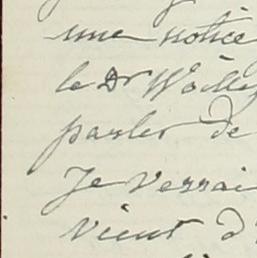 une notice
le Dr
parler de
Je verrai
vient d'